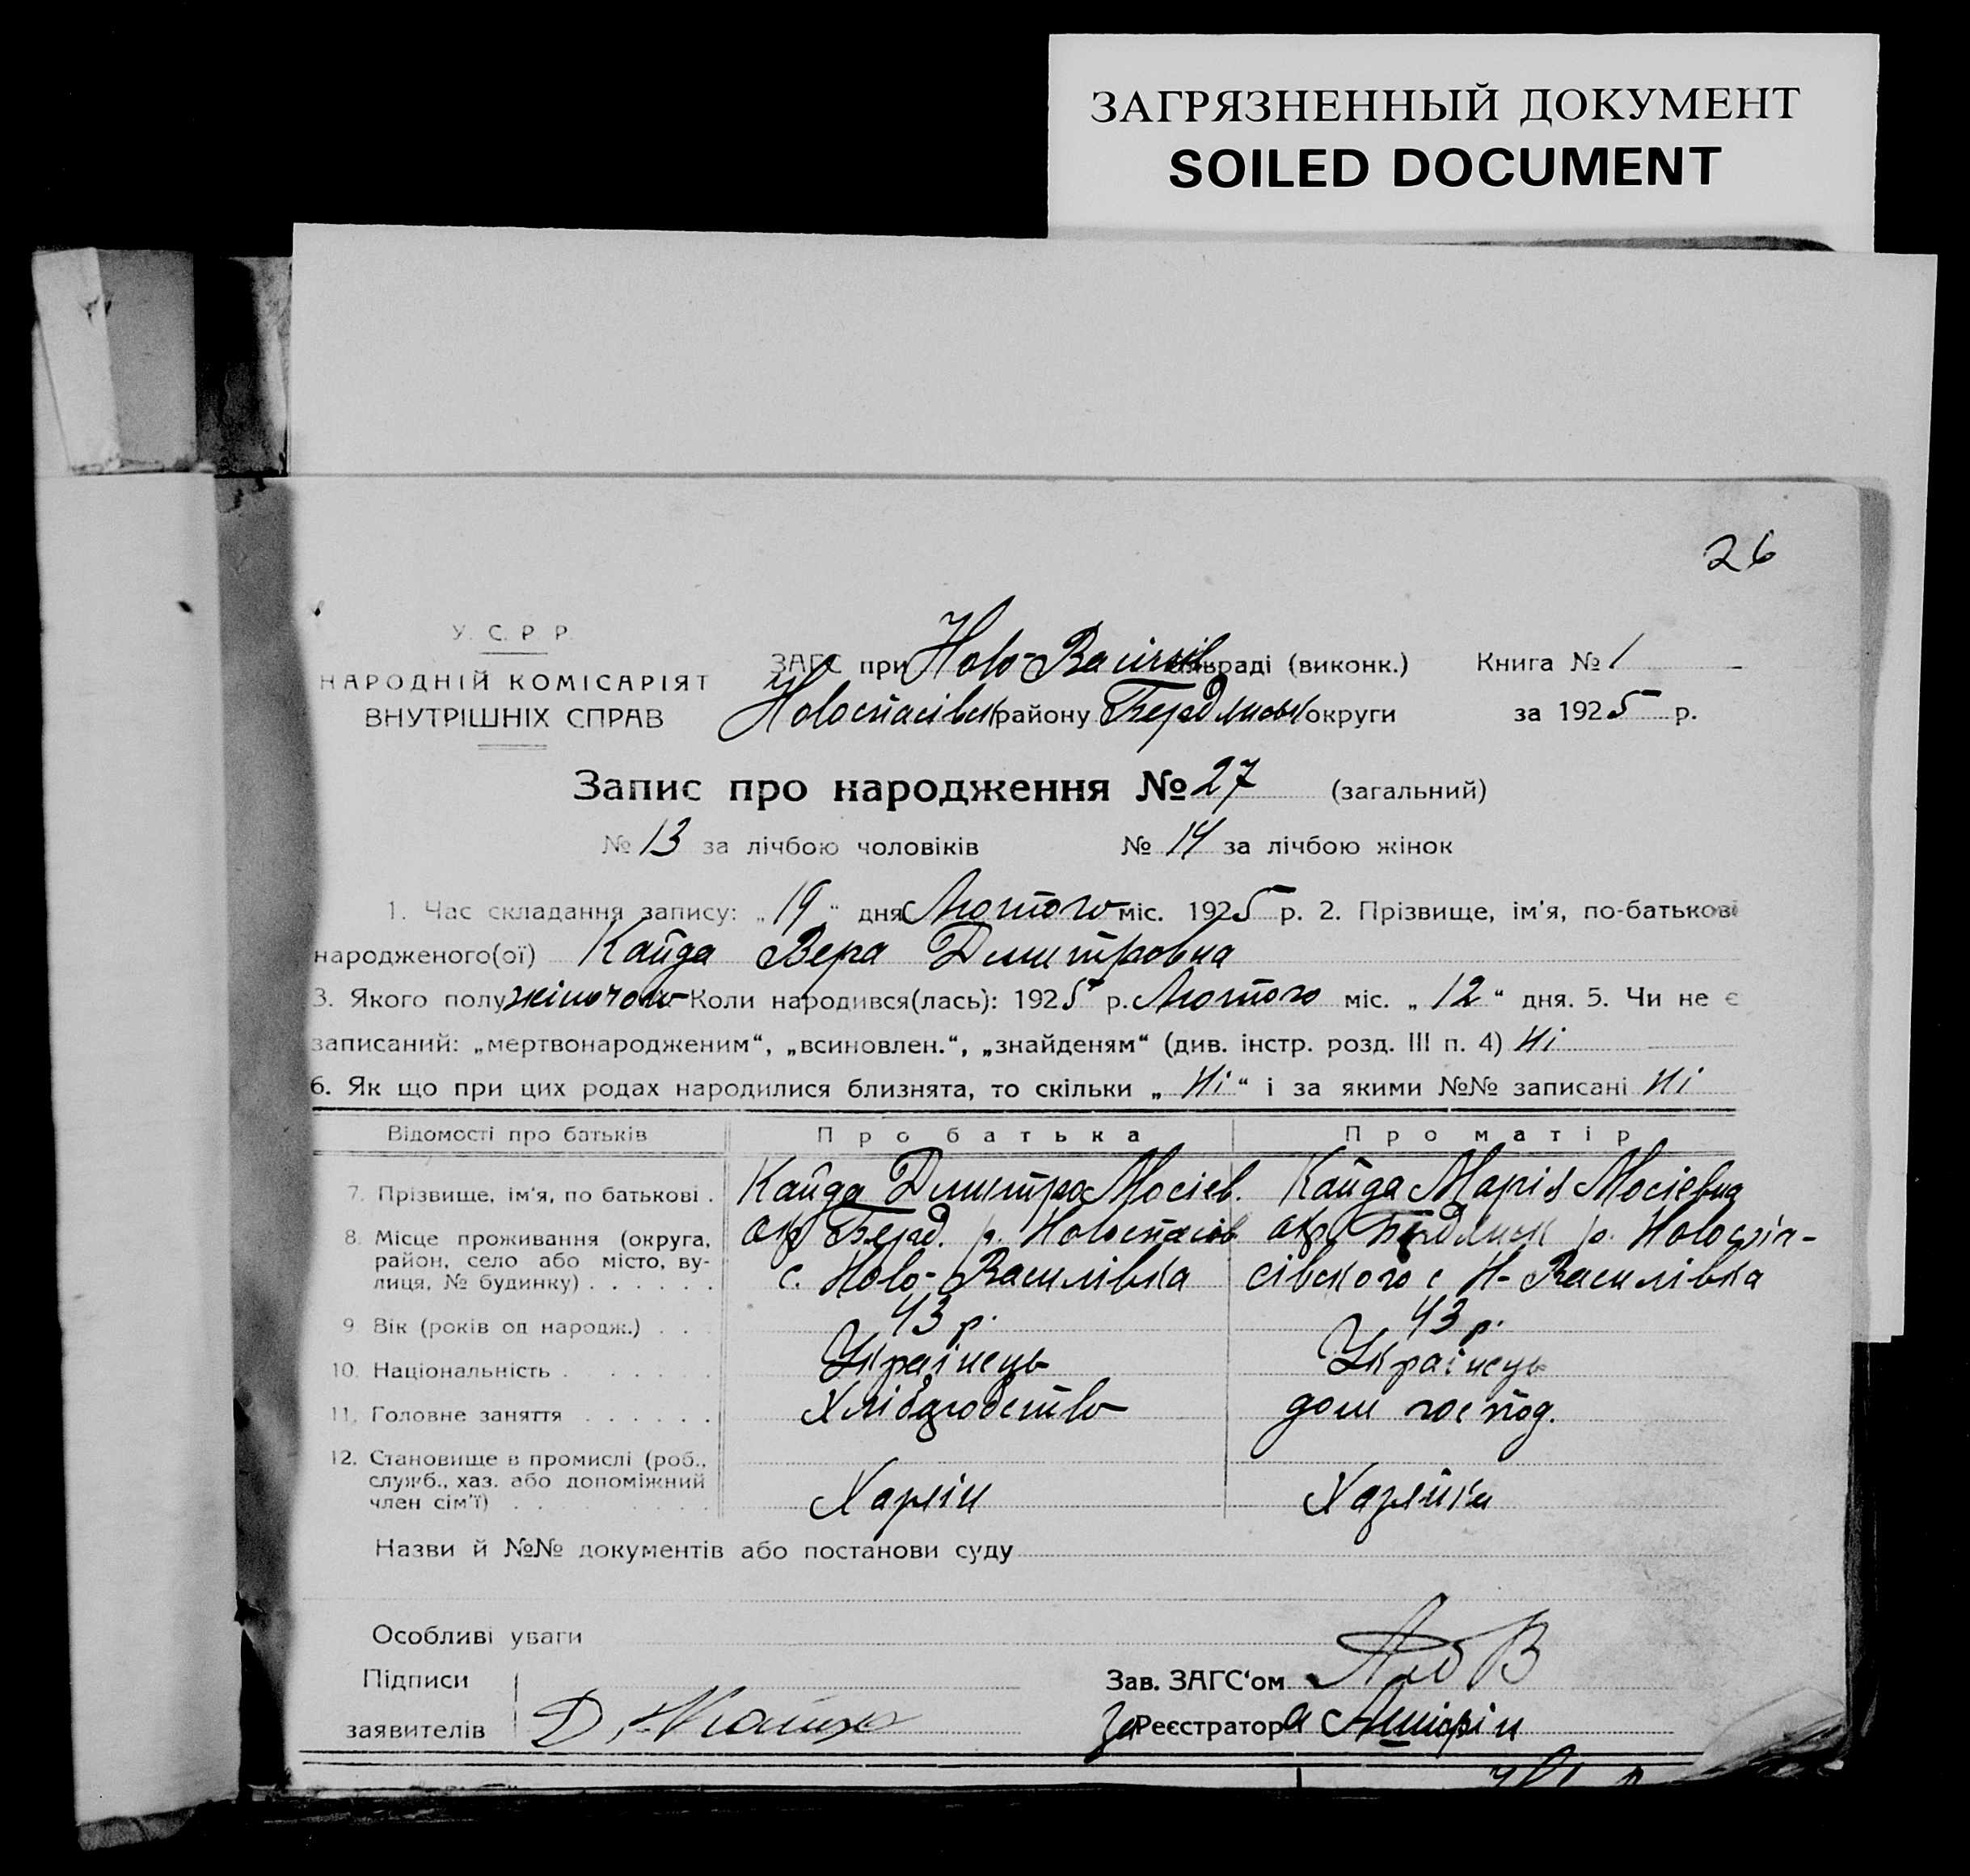 ЗАГРЯЗНЕННЫЙ ДОКУМЕНТ
SOILED DOCUMENT
26
У. С. Р. Р.
НАРОДНІЙ КОМІСАРІЯТ
ВНУТРІШНІХ СПРАВ
ЗАГС при Ново-Васильів. раді (виконк.) Книга № 1
Новоспасівськ району Бердянськ округи за 1925 р.
Запис про народження № 27 (загальний)
№ 13 за лічбою чоловіків № 14 за лічбою жінок
1. Час складання запису: „19“ дня Лютого міс. 1925 р. 2. Прізвище, ім'я, по-батькові
народженого(ої) Кайда Вера Дмитровна
3. Якого полу жіночого Коли народився(лась): 1925 р. Лютого міс. „12“ дня. 5. Чи не є
записаний: „мертвонародженим“, „всиновлен.“, „знайденям“ (див. інстр. розд. III п. 4) Ні
6. Як що при цих родах народилися близнята, то скільки „Ні“ і за якими №№ записані Ні
Відомості про батьків Про батька Про матір
7. Прізвище, ім'я, по батькові . Кайда Дмитро Мосіев. Кайда Марія Мосіевна
8. Місце проживання (округа, окр Берд. р. Новоспасів окр Бердянськ р. Новоспа-
район, село або місто, ву-
лиця, № будинку) . . . . . . с. Ново-Василівка сівського с Н-Василівка
9. Вік (років од народж.) . . . 43 р. 43 р.
10. Національність . . . . . . . Українець Українець
11. Головне заняття . . . . . . Хліборобство дом господ.
12. Становище в промислі (роб.,
служб., хаз. або допоміжний
член сім'ї) . . . . . . . . . Хазяїн Хазяйка
Назви й №№ документів або постанови суду
Особливі уваги
Підписи Зав. ЗАГС'ом
заявителів Д. Кайда За Реєстратора